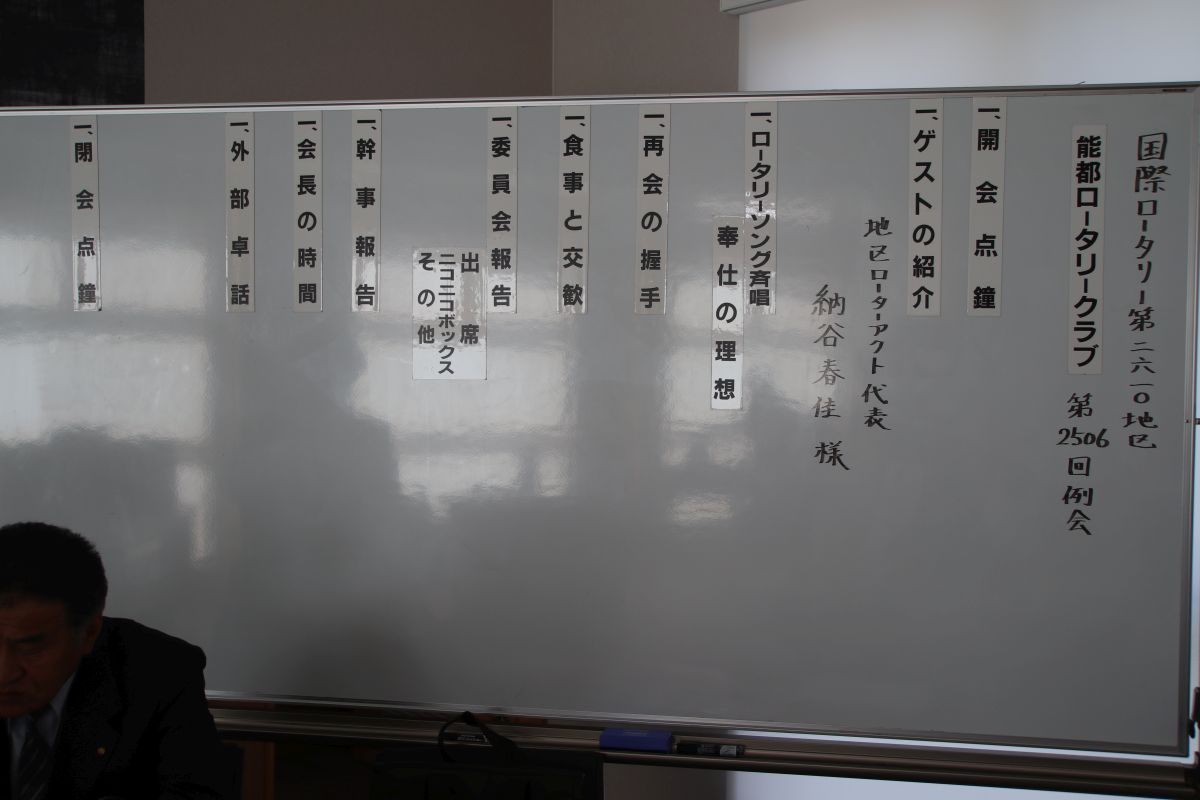 国際ロータリー第二六一〇地区
能都ロータリークラブ 第2506回例会
一、開会点鐘
一、ゲストの紹介
地区ローターアクト代表
納谷春佳 様
一、ロータリーソング斉唱
奉仕の理想
一、再会の握手
一、食事と交歓
一、委員会報告
出席
ニコニコボックス
その他
一、幹事報告
一、会長の時間
一、外部卓話
一、閉会点鐘